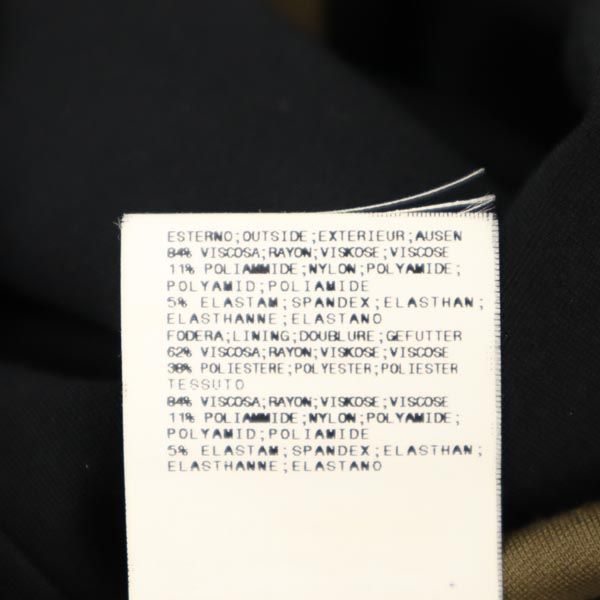 ESTERNO;OUTSIDE;EXTERIEUR;AUSEN
84% VISCOSA;RAYON;VISKOSE;VISCOSE
11% POLIAMMIDE;NYLON;POLYAMIDE;
POLYAMID;POLIAMIDE
5% ELASTAM;SPANDEX;ELASTHAN;
ELASTHANNE;ELASTANO
FODERA;LINING;DOUBLURE;GEFUTTER
62% VISCOSA;RAYON;VISKOSE;VISCOSE
38% POLIESTERE;POLYESTER;POLIESTER
TESSUTO
84% VISCOSA;RAYON;VISKOSE;VISCOSE
11% POLIAMMIDE;NYLON;POLYAMIDE;
POLYAMID;POLIAMIDE
5% ELASTAM;SPANDEX;ELASTHAN;
ELASTHANNE;ELASTANO